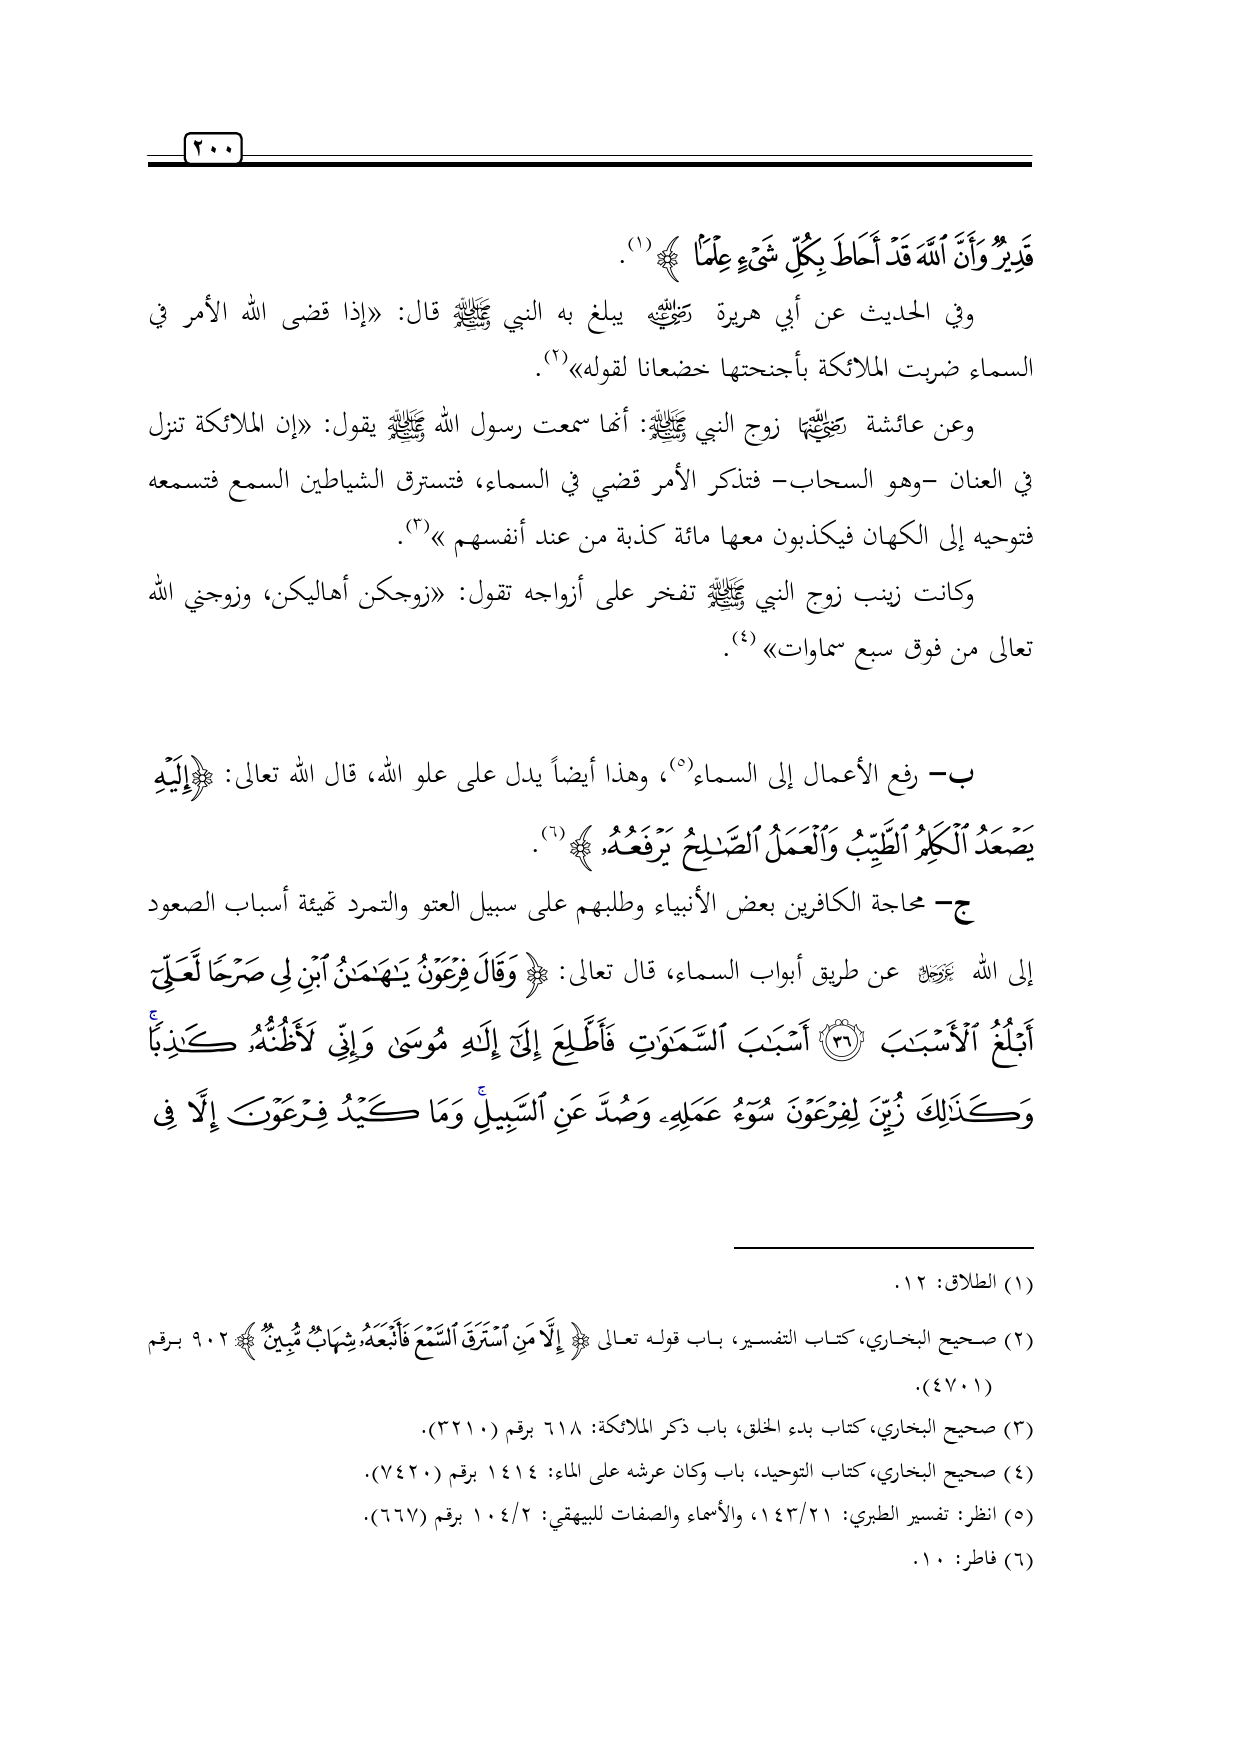 ٢٠٠
قَدِيرٌ وَأَنَّ ٱللَّهَ قَدْ أَحَاطَ بِكُلِّ شَىْءٍ عِلْمًۢا ﴾(١).
وفي الحديث عن أبي هريرة رضي الله عنه يبلغ به النبي ﷺ قال: «إذا قضى الله الأمر في
السماء ضربت الملائكة بأجنحتها خضعانا لقوله»(٢).
وعن عائشة رضي الله عنها زوج النبي ﷺ: أنها سمعت رسول الله ﷺ يقول: «إن الملائكة تنزل
في العنان –وهو السحاب– فتذكر الأمر قضي في السماء، فتسترق الشياطين السمع فتسمعه
فتوحيه إلى الكهان فيكذبون معها مائة كذبة من عند أنفسهم »(٣).
وكانت زينب زوج النبي ﷺ تفخر على أزواجه تقول: «زوجكن أهاليكن، وزوجني الله
تعالى من فوق سبع سماوات» (٤).
ب– رفع الأعمال إلى السماء(٥)، وهذا أيضاً يدل على علو الله، قال الله تعالى: ﴿إِلَيْهِ
يَصْعَدُ ٱلْكَلِمُ ٱلطَّيِّبُ وَٱلْعَمَلُ ٱلصَّـٰلِحُ يَرْفَعُهُۥ ﴾(٦).
ج– محاجة الكافرين بعض الأنبياء وطلبهم على سبيل العتو والتمرد تهيئة أسباب الصعود
إلى الله عز وجل عن طريق أبواب السماء، قال تعالى: ﴿ وَقَالَ فِرْعَوْنُ يَـٰهَـٰمَـٰنُ ٱبْنِ لِى صَرْحًا لَّعَلِّىٓ
أَبْلُغُ ٱلْأَسْبَـٰبَ ۝٣٦ أَسْبَـٰبَ ٱلسَّمَـٰوَٰتِ فَأَطَّلِعَ إِلَىٰٓ إِلَـٰهِ مُوسَىٰ وَإِنِّى لَأَظُنُّهُۥ كَـٰذِبًا ۚ
وَكَذَٰلِكَ زُيِّنَ لِفِرْعَوْنَ سُوٓءُ عَمَلِهِۦ وَصُدَّ عَنِ ٱلسَّبِيلِ ۚ وَمَا كَيْدُ فِرْعَوْنَ إِلَّا فِى
(١) الطلاق: ١٢.
(٢) صحيح البخاري، كتاب التفسير، باب قوله تعالى ﴿ إِلَّا مَنِ ٱسْتَرَقَ ٱلسَّمْعَ فَأَتْبَعَهُۥ شِهَابٌ مُّبِينٌ ﴾ ٩٠٢ برقم
(٤٧٠١).
(٣) صحيح البخاري، كتاب بدء الخلق، باب ذكر الملائكة: ٦١٨ برقم (٣٢١٠).
(٤) صحيح البخاري، كتاب التوحيد، باب وكان عرشه على الماء: ١٤١٤ برقم (٧٤٢٠).
(٥) انظر: تفسير الطبري: ١٤٣/٢١، والأسماء والصفات للبيهقي: ١٠٤/٢ برقم (٦٦٧).
(٦) فاطر: ١٠.